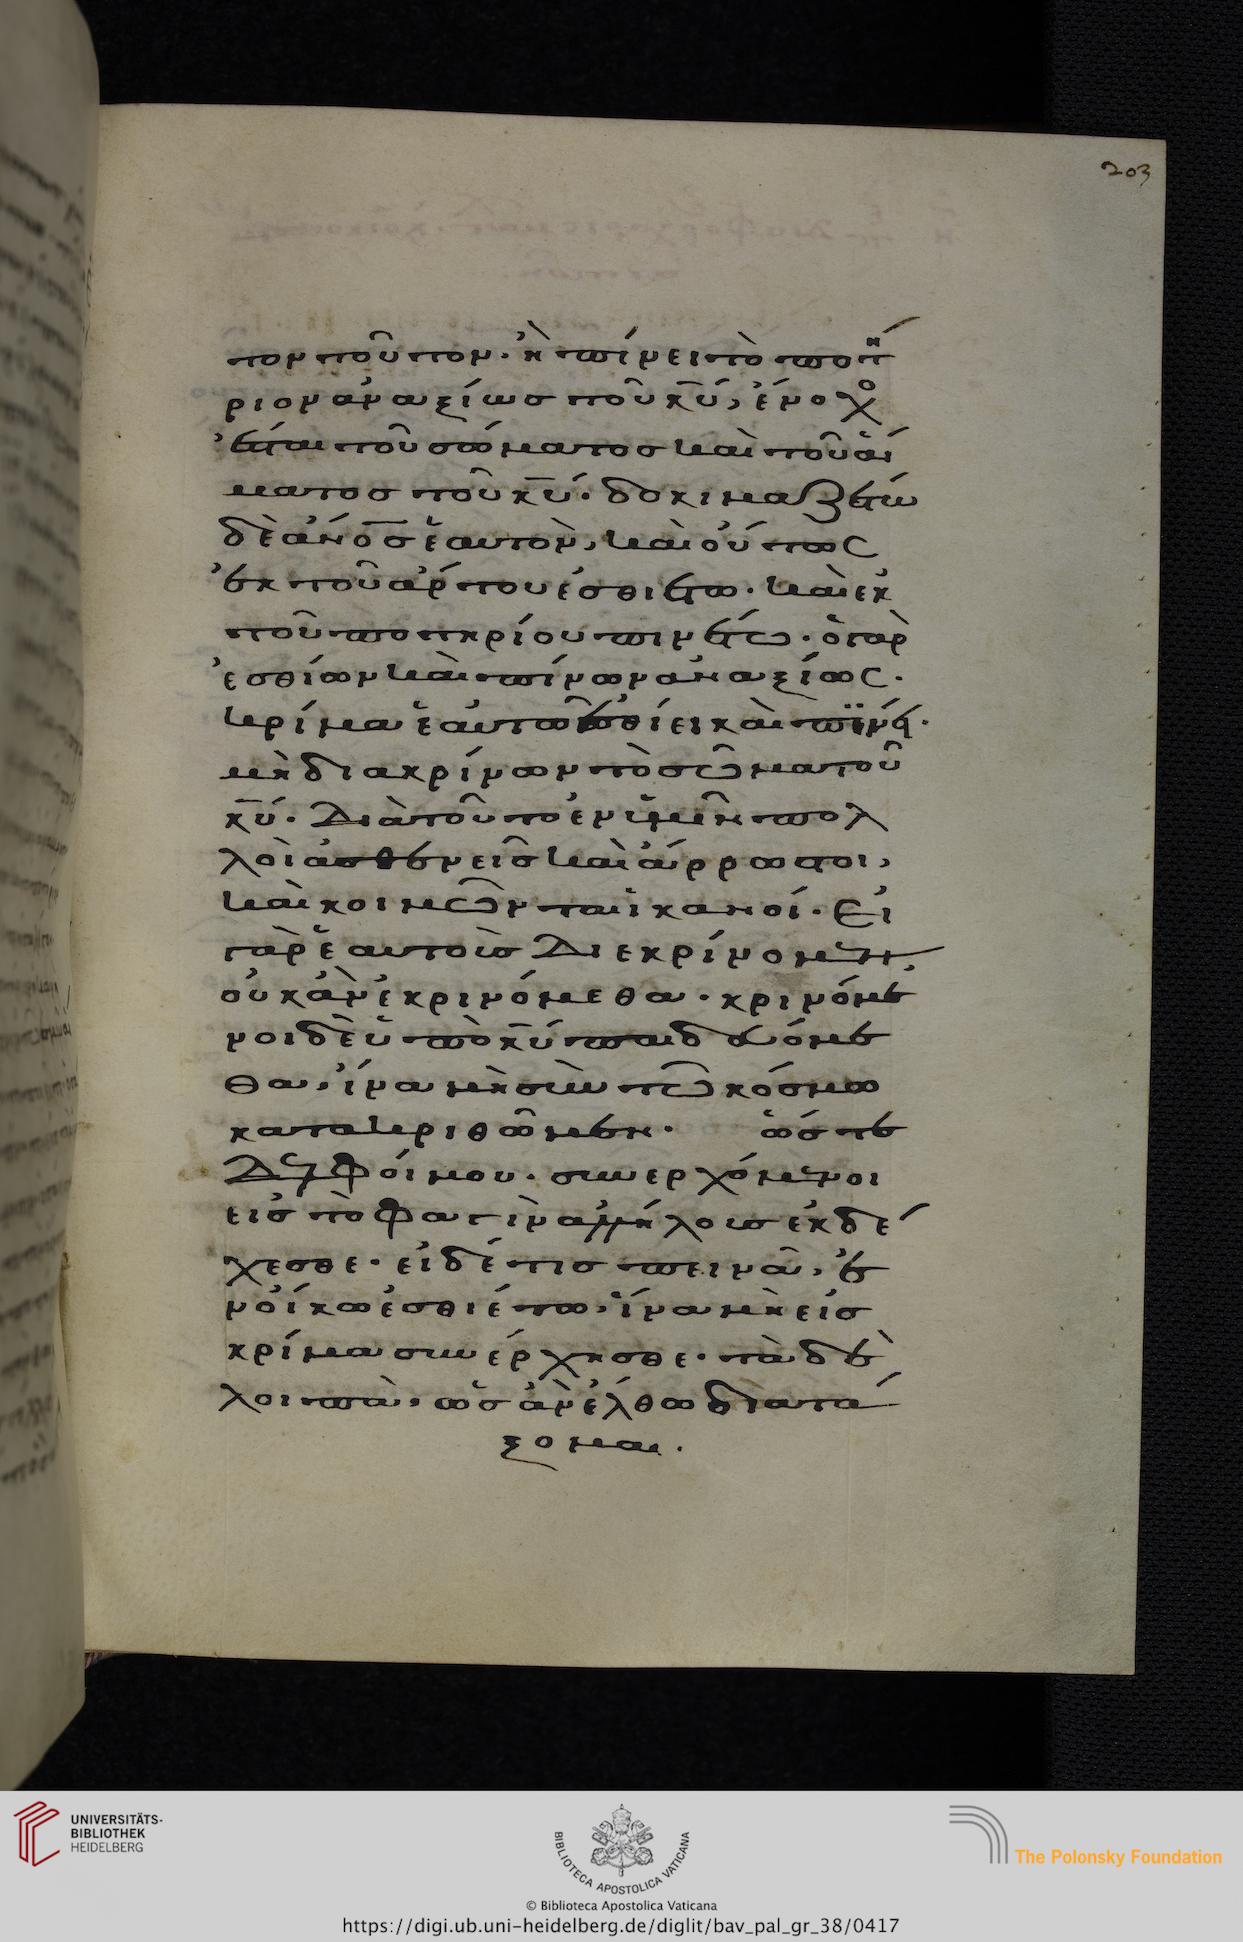 203
τον τοῦτον· ἢ πίνει τὸ ποτή
ριον ἀναξίωσ τοῦ κ̅υ̅, ἔνοχο
ἔσται τοῦ σώματοσ καὶ τοῦ αἵ
ματοσ τοῦ κ̅υ̅· δοκιμαζέτω
δὲ ἄν̅ο̅σ̅ ἑαυτὸν, καὶ οὕτωσ
ἐκ τοῦ ἄρτου ἐσθιέτω· καὶ ἐκ
τοῦ ποτηρίου πινέτω· ὁ γὰρ
ἐσθίων καὶ πίνων ἀναξίωσ.
κρίμα ἑαυτῶ ἐσθίει καὶ πίνει·
μὴ διακρίνων τὸ σῶμα τοῦ
κ̅υ̅· Διὰ τοῦτο ἐν ὑμῖν πολ
λοὶ ἀσθενεῖσ καὶ ἄρρωστοι,
καὶ κοιμῶνται ἱκανοί· Εἰ
γὰρ ἑαυτοὺσ διεκρίνομεν,
οὐκ ἂν ἐκρινόμεθα· κρινόμε
νοι δὲ ὑπὸ κ̅υ̅ παιδευόμε
θα, ἵνα μὴ σὺν τῶ κόσμω
κατακριθῶμεν· ὥστε
ἀδελφοί μου· συνερχόμενοι
εἰσ τὸ φαγεῖν ἀλλήλουσ ἐκδέ
χεσθε· εἰ δέ τισ πεινᾶ, ἐ
ν οἴκω ἐσθιέτω, ἵνα μὴ εἰσ
κρίμα συνέρχησθε· τὰ δὲ
λοιπὰ, ὡσ ἂν ἔλθω διατά
ξομαι.
UNIVERSITÄTS-
BIBLIOTHEK
HEIDELBERG
BIBLIOTECA APOSTOLICA VATICANA
The Polonsky Foundation
© Biblioteca Apostolica Vaticana
https://digi.ub.uni-heidelberg.de/diglit/bav_pal_gr_38/0417